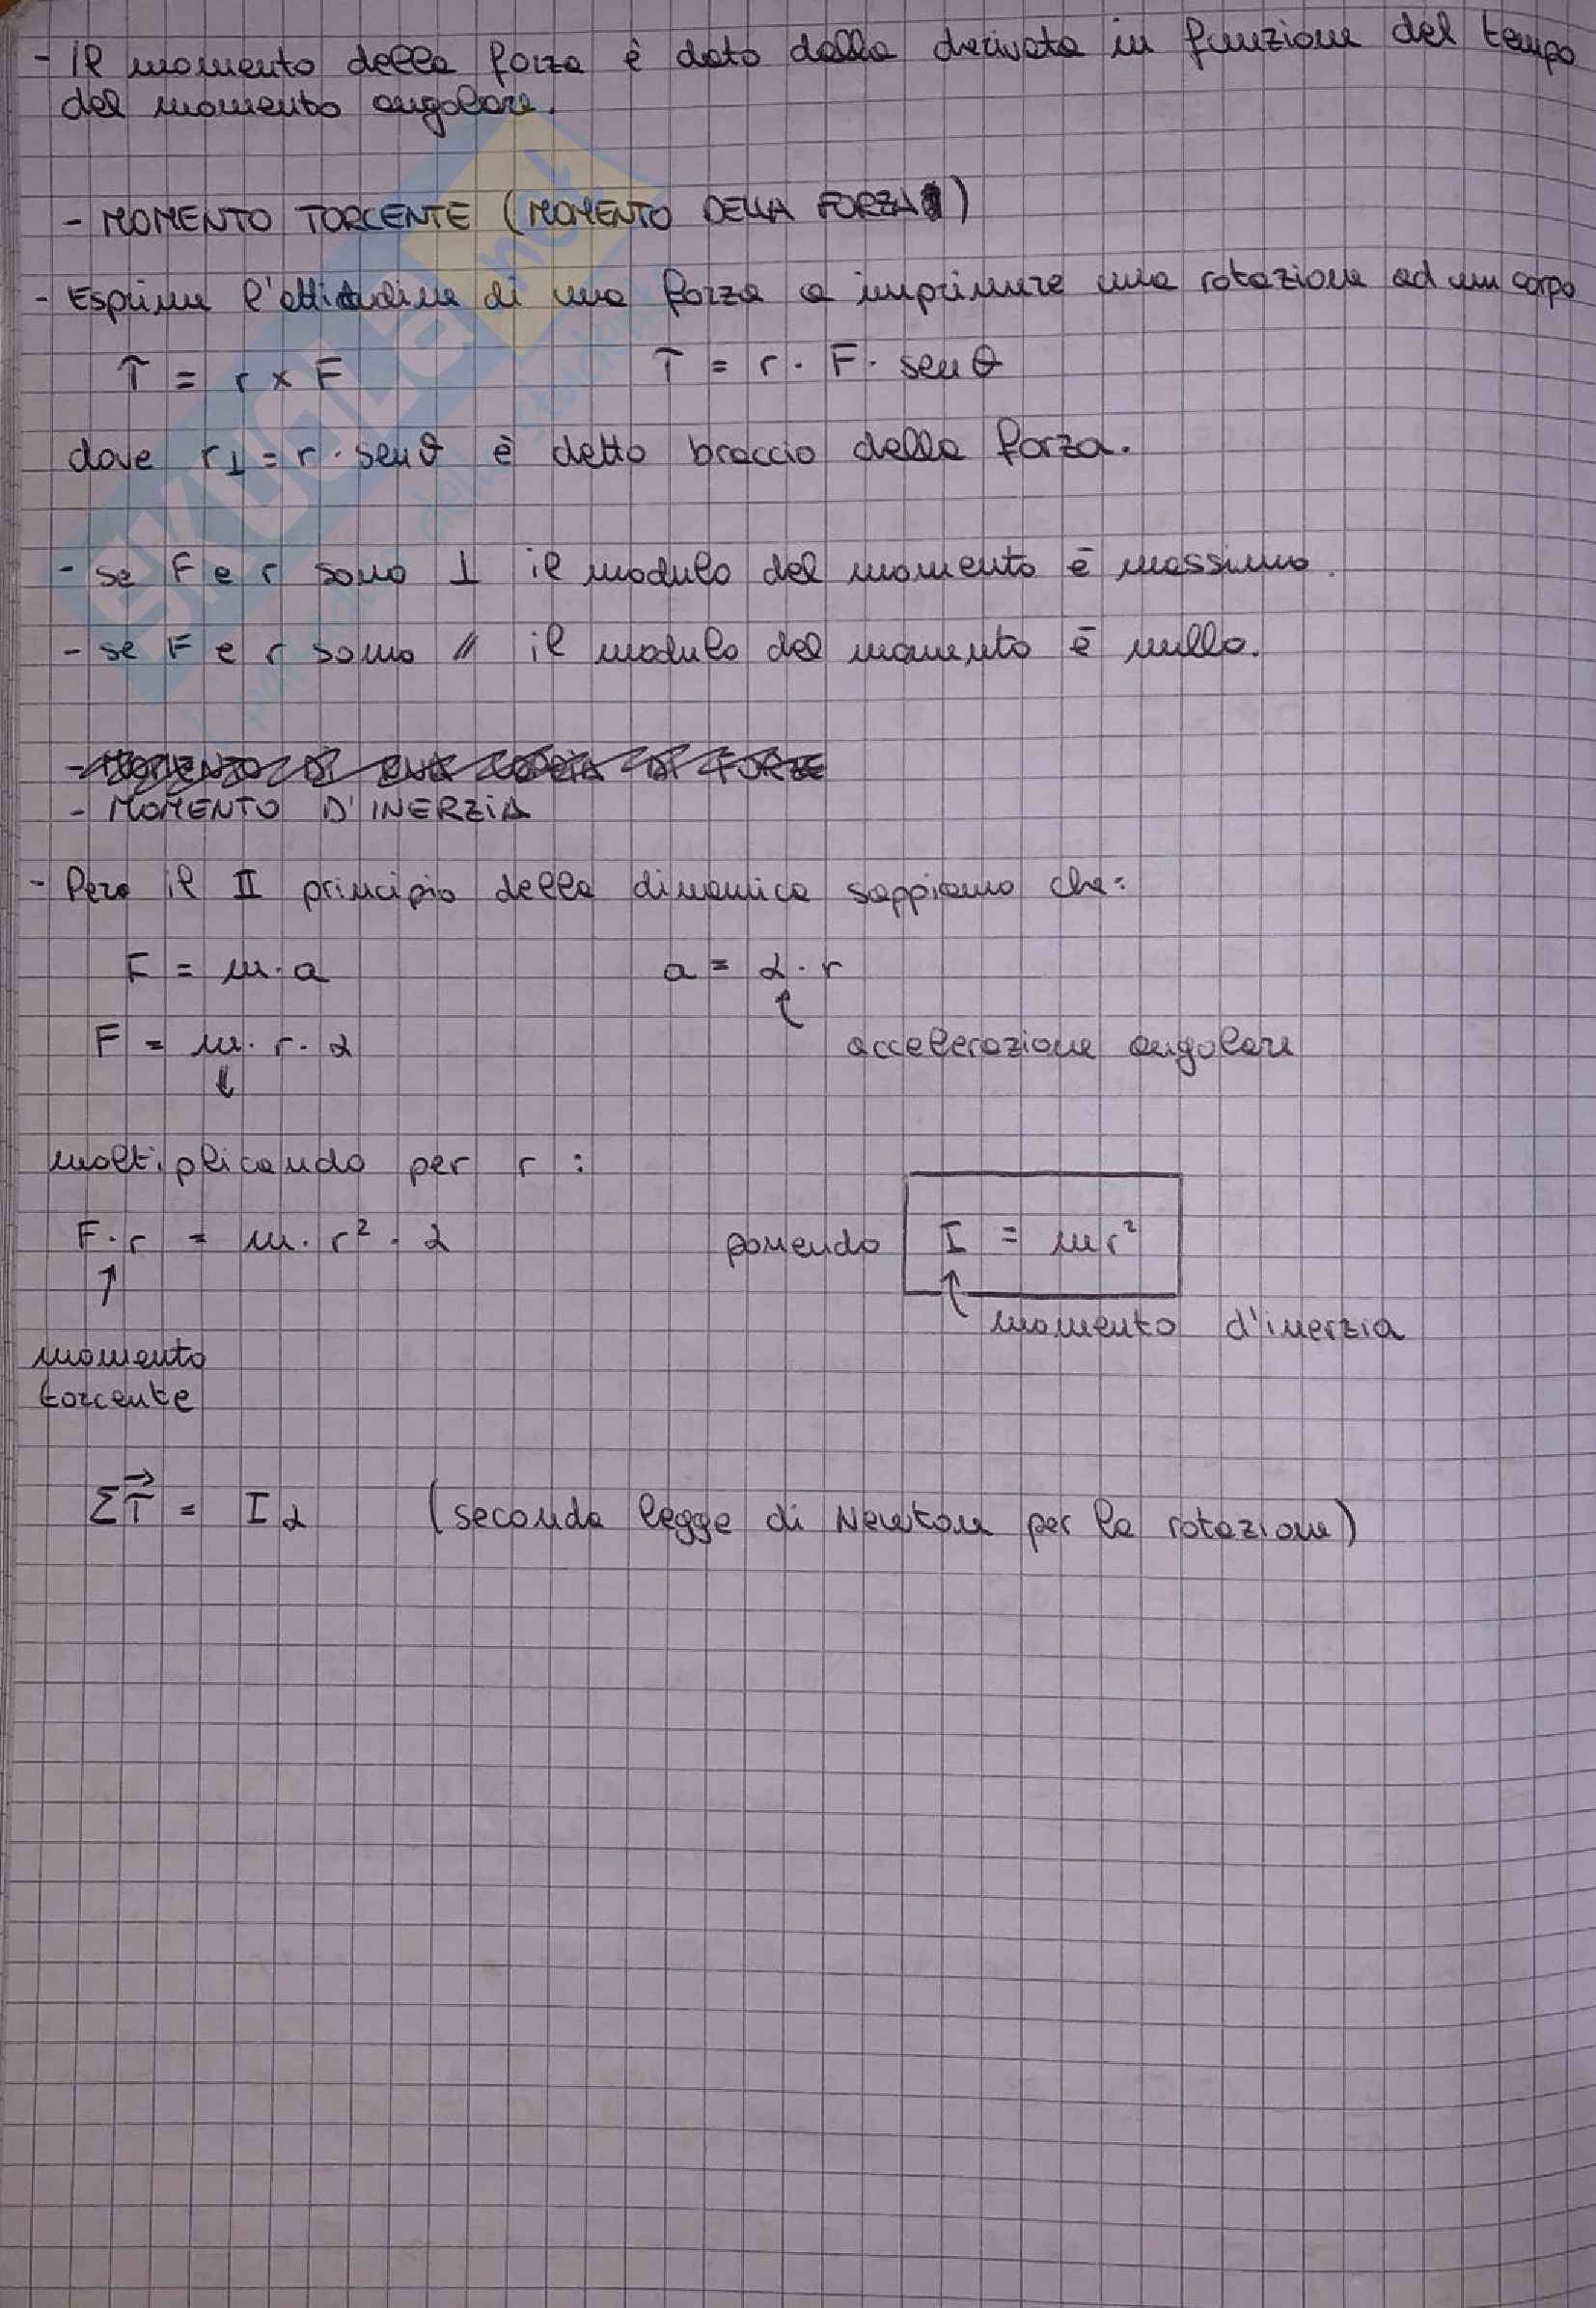 - Il momento della forza è dato dalla derivata in funzione del tempo
del momento angolare.
- MOMENTO TORCENTE (MOMENTO DELLA FORZA)
- Esprime l'attitudine di una forza a imprimere una rotazione ad un corpo
τ = r × F    τ = r · F · senθ
dove r⊥ = r · senθ è detto braccio della forza.
- se F e r sono ⊥ il modulo del momento è massimo.
- se F e r sono // il modulo del momento è nullo.
- MOMENTO DI UNA COPPIA DI FORZE
- MOMENTO D'INERZIA
- Pero il II principio della dinamica sappiamo che:
F = m · a    a = α · r
F = m · r · α    accelerazione angolare
moltiplicando per r :
F · r = m · r² · α    ponendo I = mr²
momento d'inerzia
momento
torcente
Στ⃗ = Iα    (seconda legge di Newton per la rotazione)
SKUOLA.net